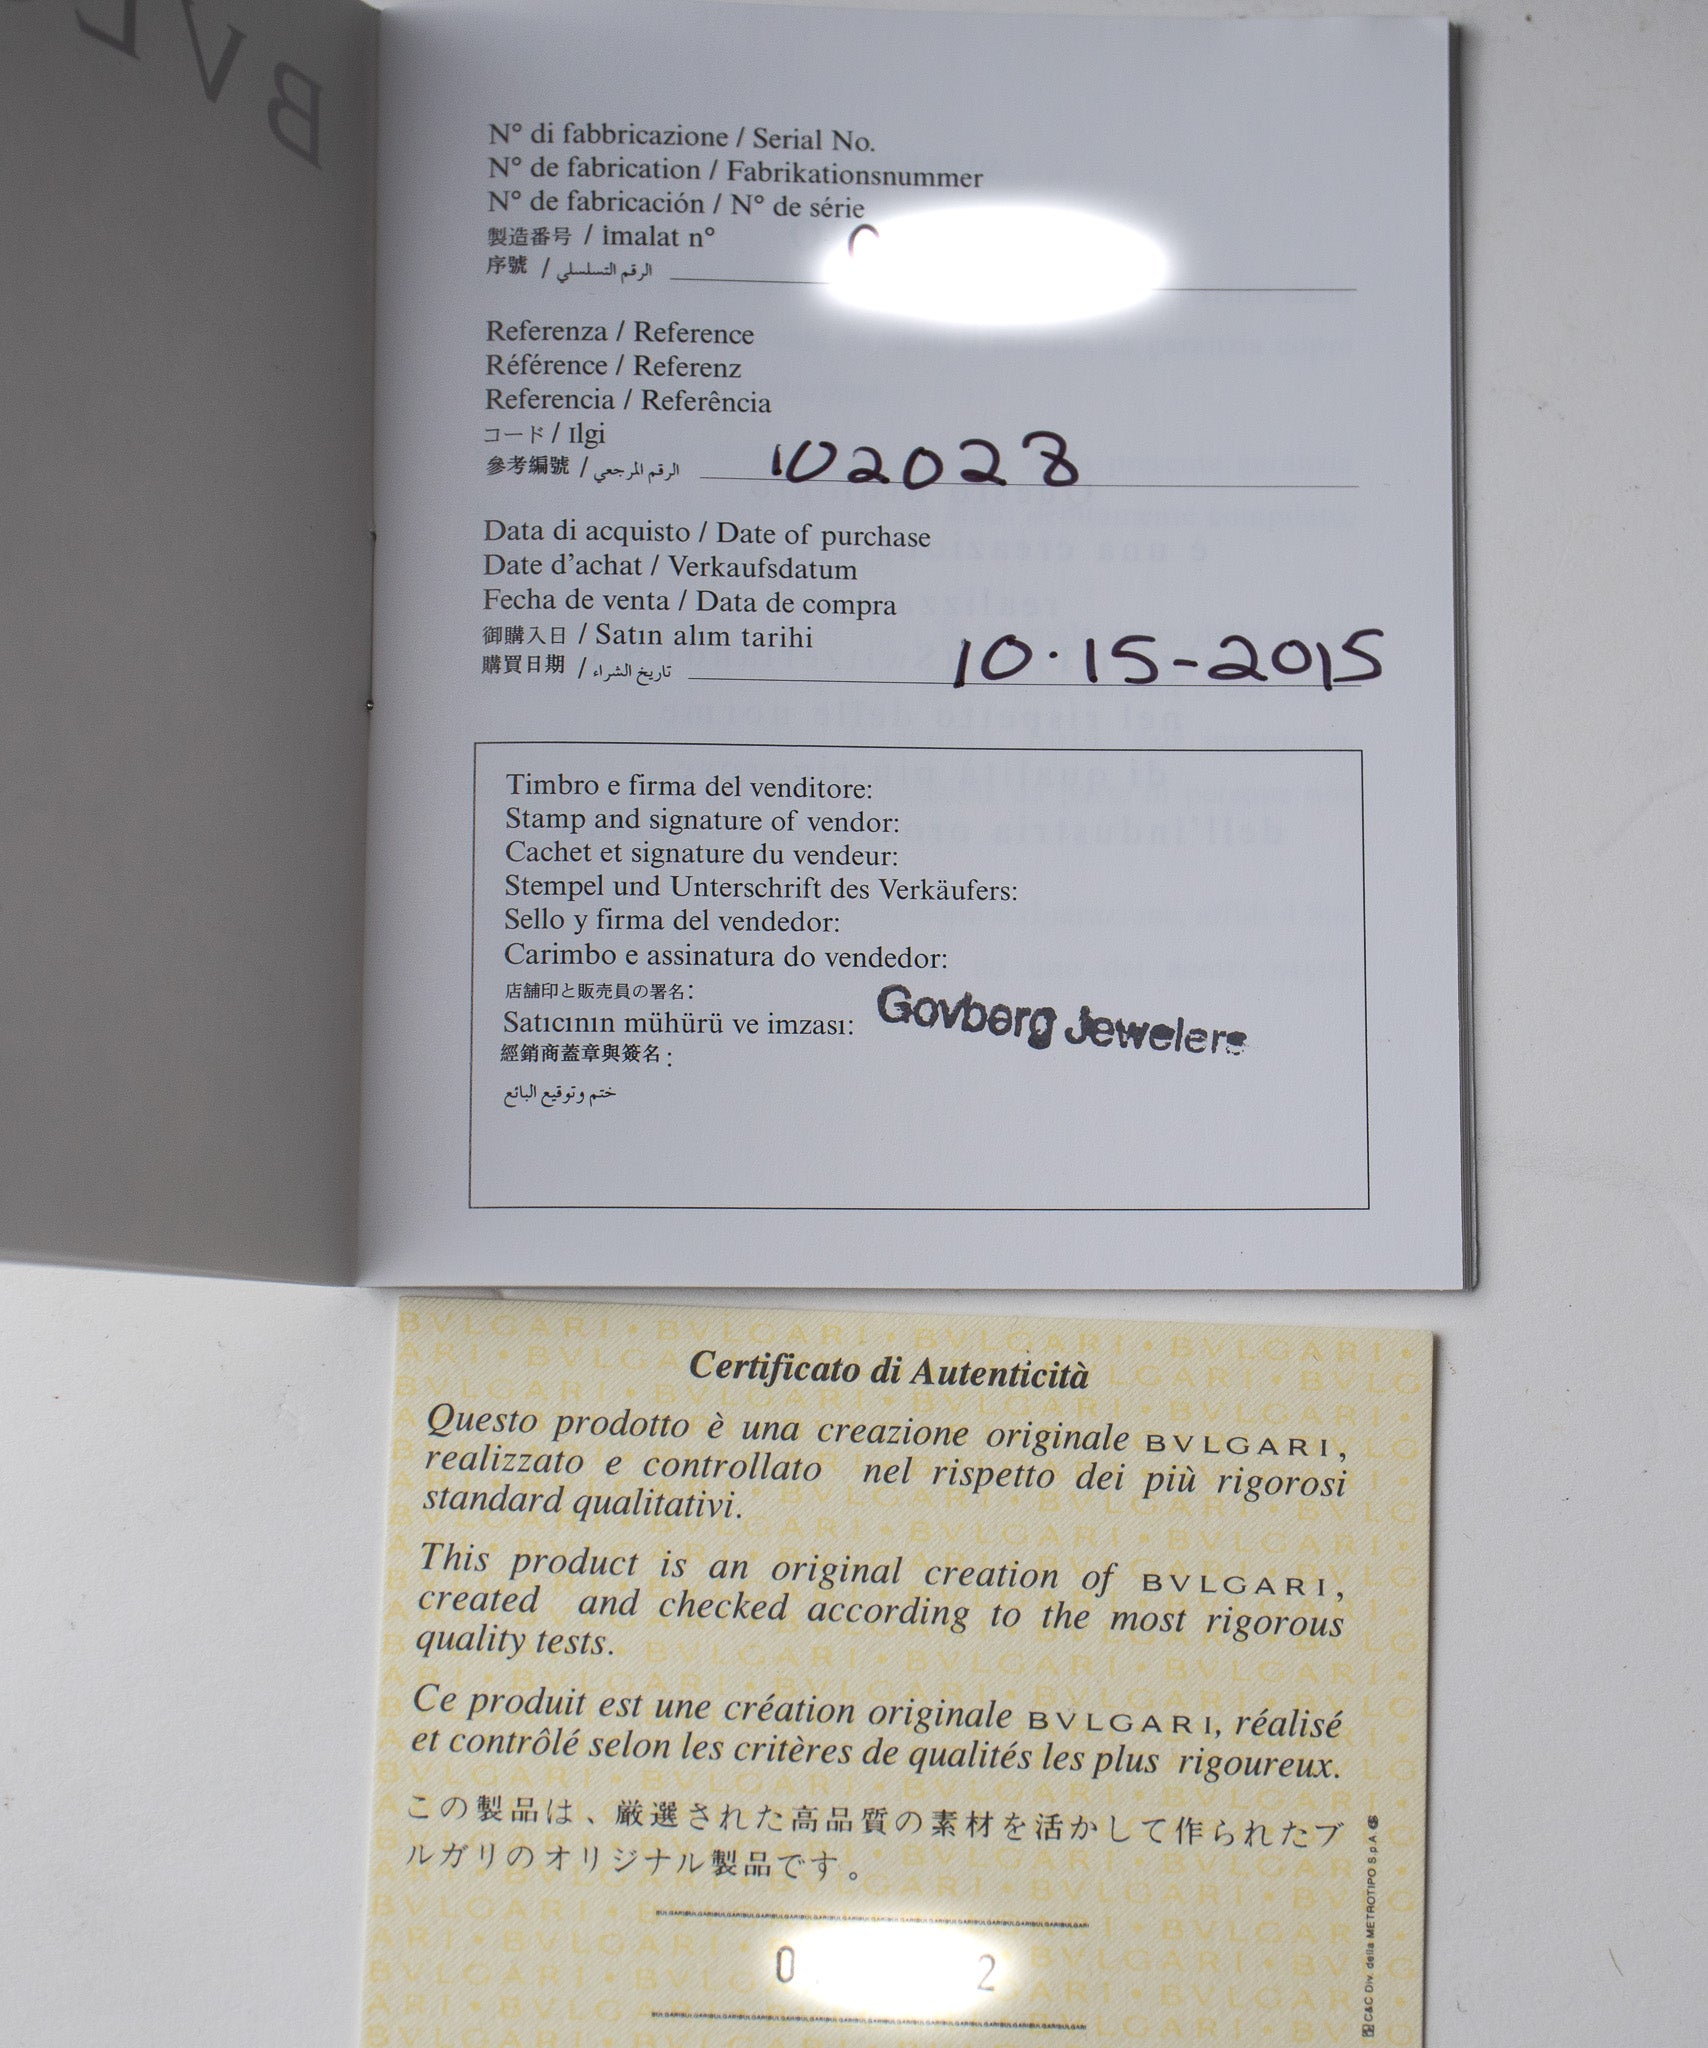 BVL
N° di fabbricazione / Serial No.
N° de fabrication / Fabrikationsnummer
N° de fabricación / N° de série
製造番号 / imalat n°
序號 / الرقم التسلسلي
Referenza / Reference
Référence / Referenz
Referencia / Referência
コード / Ilgi
參考編號 / الرقم المرجعي 102028
Data di acquisto / Date of purchase
Date d'achat / Verkaufsdatum
Fecha de venta / Data de compra
御購入日 / Satın alım tarihi
購買日期 / تاريخ الشراء 10·15-2015
Timbro e firma del venditore:
Stamp and signature of vendor:
Cachet et signature du vendeur:
Stempel und Unterschrift des Verkäufers:
Sello y firma del vendedor:
Carimbo e assinatura do vendedor:
店舗印と販売員の署名:
Satıcının mühürü ve imzası: Govberg Jewelers
經銷商蓋章與簽名:
ختم وتوقيع البائع
Certificato di Autenticità
Questo prodotto è una creazione originale BVLGARI,
realizzato e controllato nel rispetto dei più rigorosi
standard qualitativi.
This product is an original creation of BVLGARI,
created and checked according to the most rigorous
quality tests.
Ce produit est une création originale BVLGARI, réalisé
et contrôlé selon les critères de qualités les plus rigoureux.
この製品は、厳選された高品質の素材を活かして作られたブ
ルガリのオリジナル製品です。
0 2
C&C Div. della METROTIPO S.p.A.